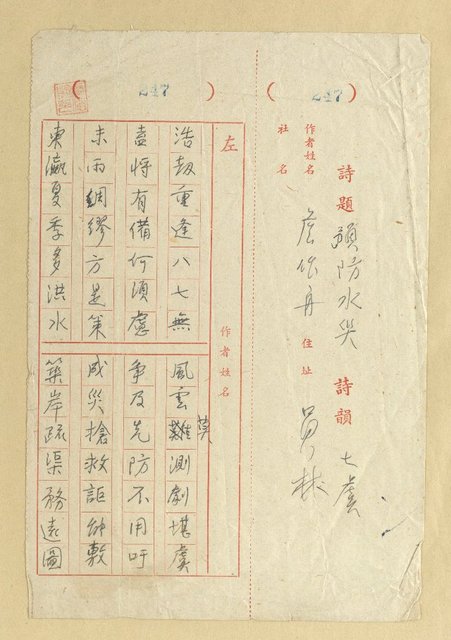 ( 247 )
詩題 預防水災 詩韻 七虞
作者姓名 詹作舟 住址 員林
社名
( 247 )
左 作者姓名
浩劫重逢八七無 風雲莫測劇堪虞
將有備何須慮 爭及先防不用吁
未雨綢繆方是策 成災搶救詎敷
東瀛夏季多洪水 築岸疏渠務遠圖